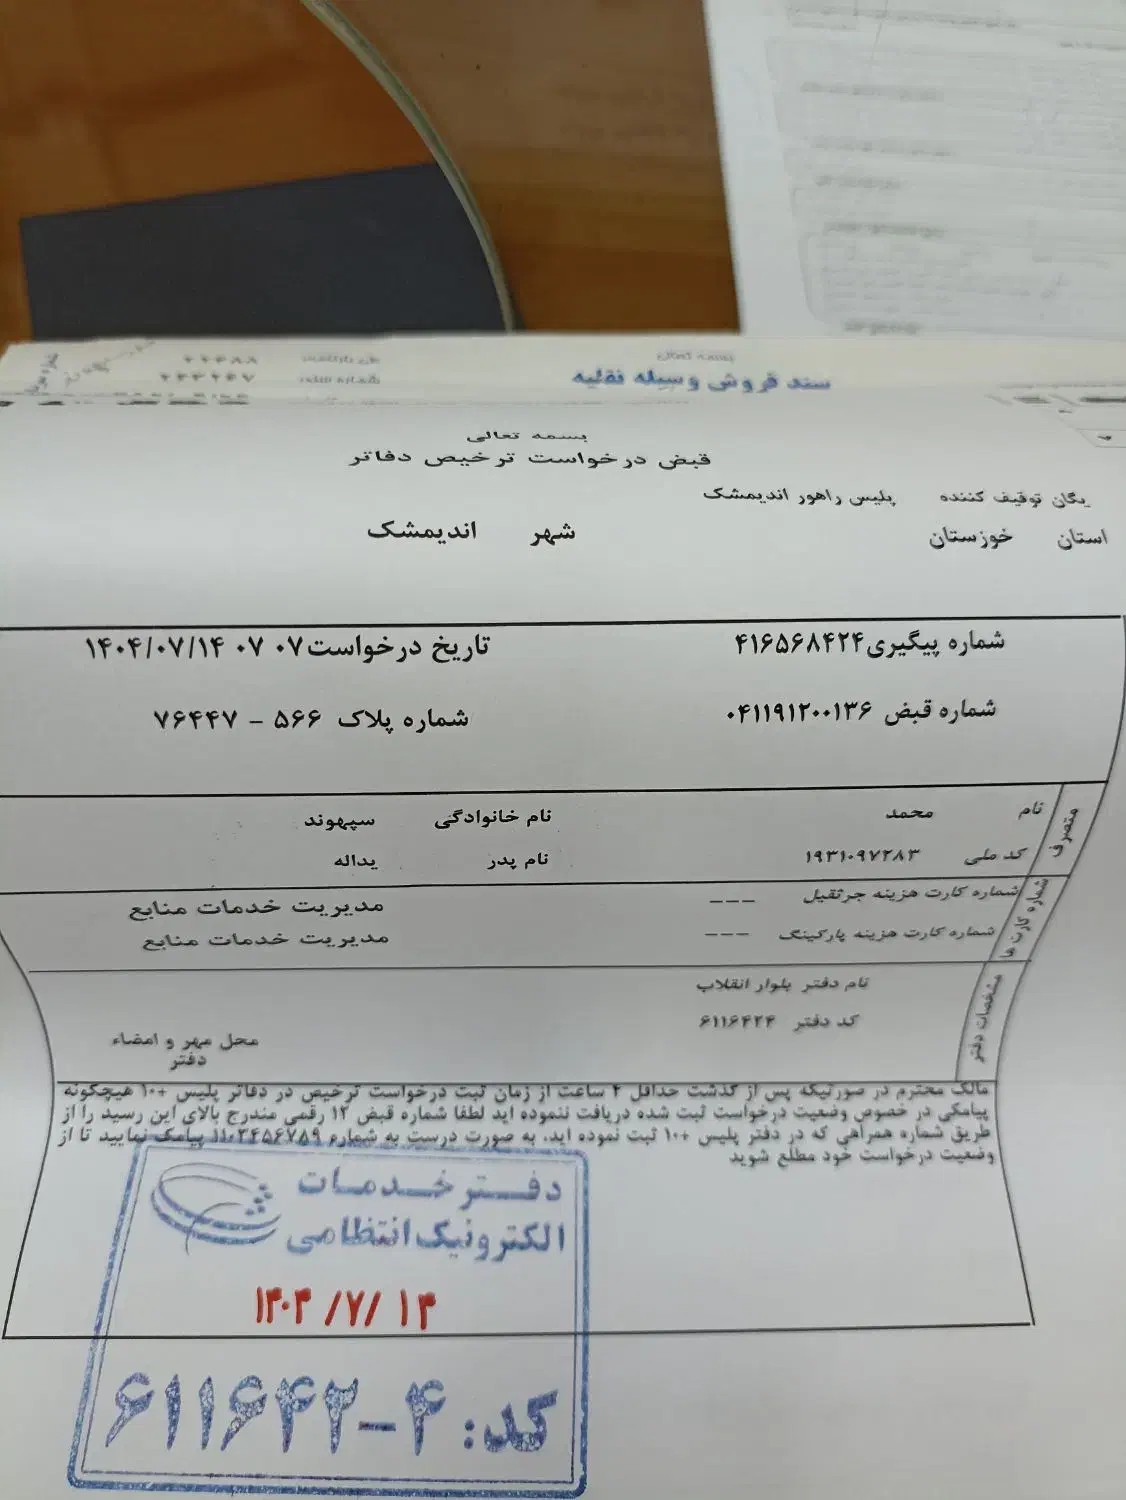 سند فروش وسیله نقلیه
بسمه تعالی
قبض درخواست ترخیص دفاتر
یگان توقیف کننده پلیس راهور اندیمشک
استان خوزستان شهر اندیمشک
شماره پیگیری ۴۱۶۵۶۸۴۲۴ تاریخ درخواست ۰۷ ۰۷ ۱۴۰۴/۰۷/۱۴
شماره قبض ۰۴۱۱۹۱۲۰۰۱۳۶ شماره پلاک ۵۶۶ - ۷۶۴۴۷
متصرف
نام محمد نام خانوادگی سپهوند
کد ملی ۱۹۳۱۰۹۷۲۸۳ نام پدر یداله
شماره کارت ها
شماره کارت هزینه جرثقیل --- مدیریت خدمات منابع
شماره کارت هزینه پارکینگ --- مدیریت خدمات منابع
مشخصات دفتر
نام دفتر بلوار انقلاب
کد دفتر ۶۱۱۶۴۲۴
محل مهر و امضاء
دفتر
مالک محترم در صورتیکه پس از گذشت حداقل ۲ ساعت از زمان ثبت درخواست ترخیص در دفاتر پلیس +۱۰ هیچگونه
پیامکی در خصوص وضعیت درخواست ثبت شده دریافت ننموده اید لطفا شماره قبض ۱۲ رقمی مندرج بالای این رسید را از
طریق شماره همراهی که در دفتر پلیس +۱۰ ثبت نموده اید، به صورت درست به شماره ۱۱۰۲۳۴۵۶۷۸۹ پیامک نمایید تا از
وضعیت درخواست خود مطلع شوید
دفتر خدمات
الکترونیک انتظامی
۱۴۰۴ /۷/ ۱۴
کد: ۴-۶۱۱۶۴۲